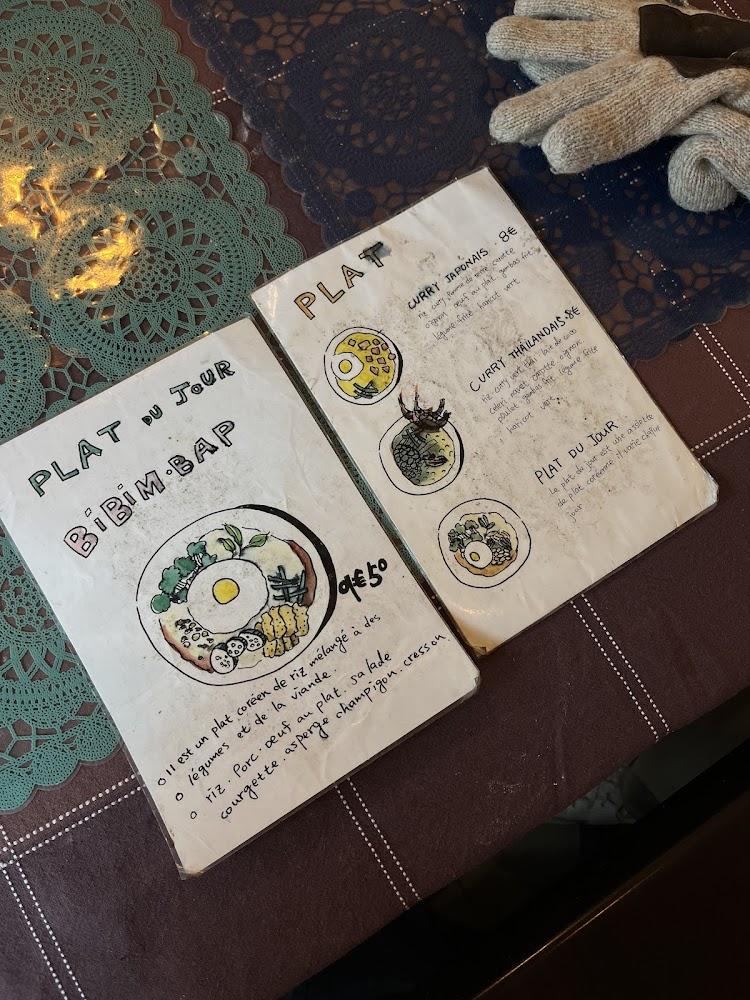 PLAT DU JOUR
BiBiM·BAP
9€50
o Il est un plat coréen de riz mélangé à des
o légumes et de la viande.
o riz. Porc. oeuf au plat. salade
courgette. asperge champigon. cresson
PLAT
CURRY JAPONAIS . 8€
riz curry pomme de terre carotte
oignon oeuf au plat gambas frit
légume frite haricot vert
CURRY THAÏLANDAIS. 8€
riz curry vert thai lait de coco
céleri navet carotte oignon
poulet gambas frit légume frite
haricot vert
PLAT DU JOUR
Le plat du jour est une assiette
de plat coréenne il varie chaque
jour